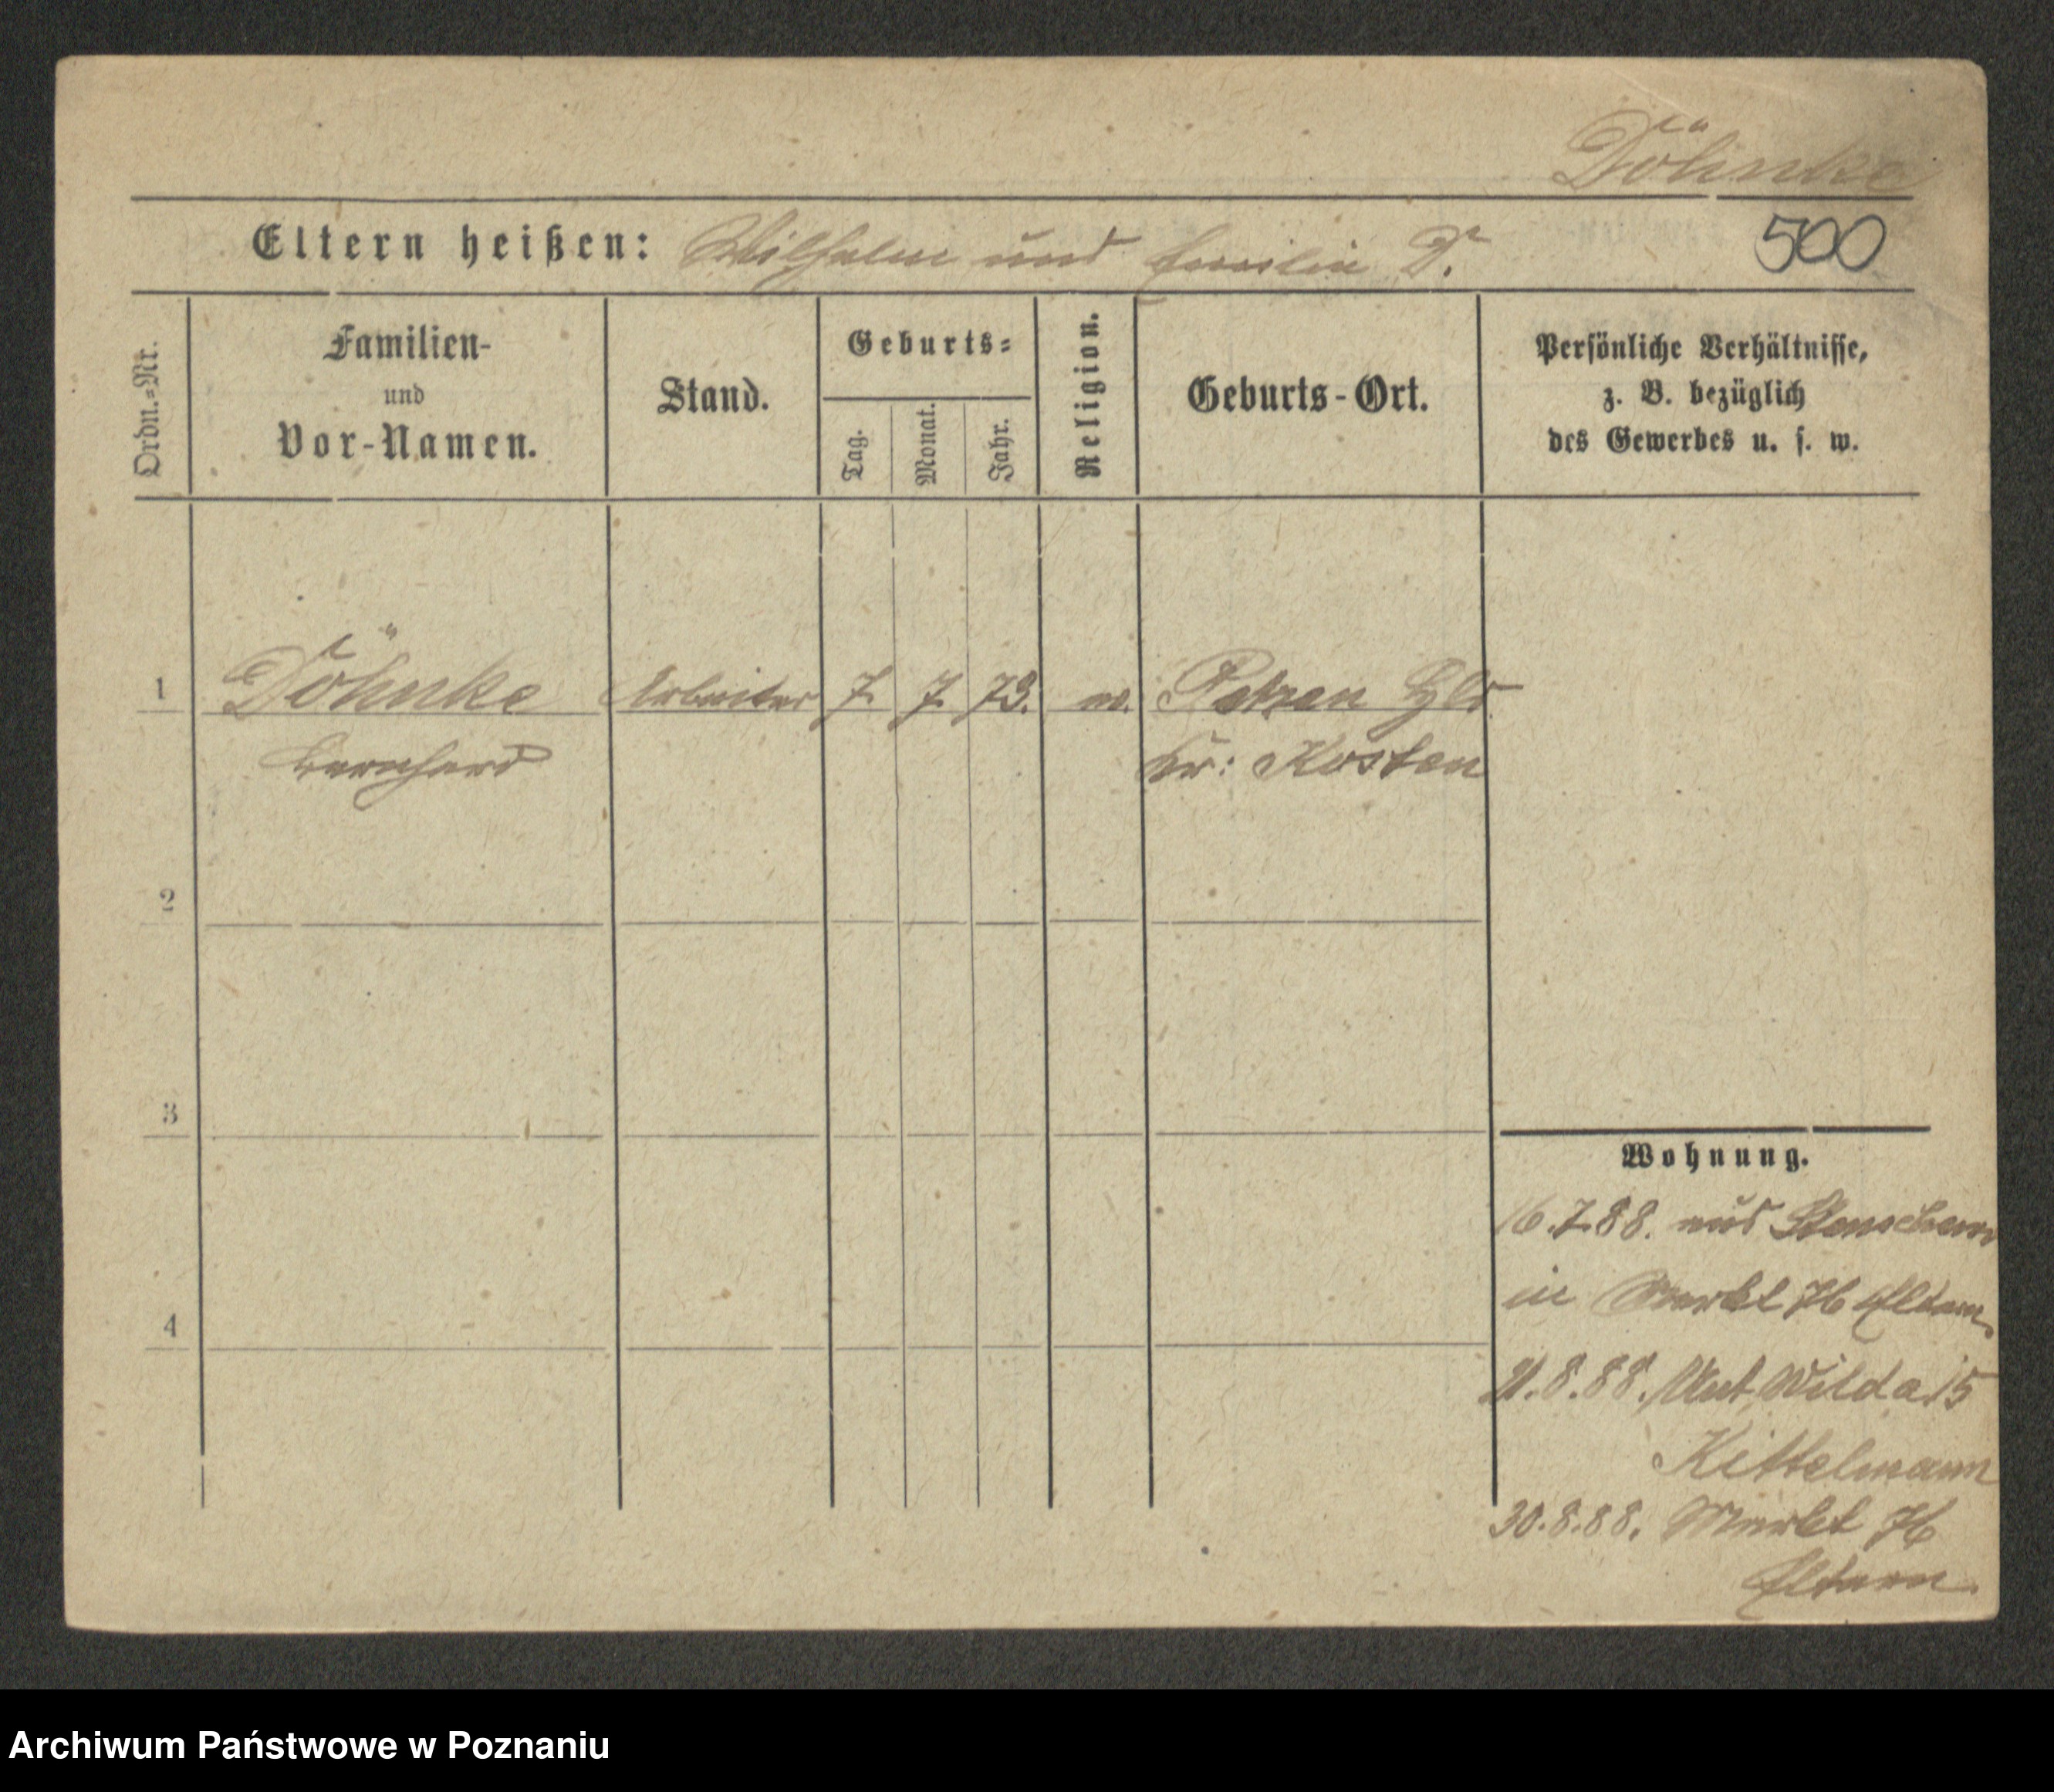 Döhnke
Eltern heißen: Wilhelm und Emilie D.
500
Ordn.=Nr.
Familien-
und
Vor-Namen.
Stand.
Geburts=
Tag.
Monat.
Jahr.
Religion.
Geburts-Ort.
Persönliche Verhältnisse,
z. B. bezüglich
des Gewerbes u. s. w.
1 Döhnke Arbeiter 7. 7. 73.
Bernhard Kr: Kosten
2
3
4
Wohnung.
16.7.88. aus
in Markt 76 Eltern
21.8.88. Unt Wilda 15
Kittelmann
30.8.88. Markt 76
Eltern.
Archiwum Państwowe w Poznaniu